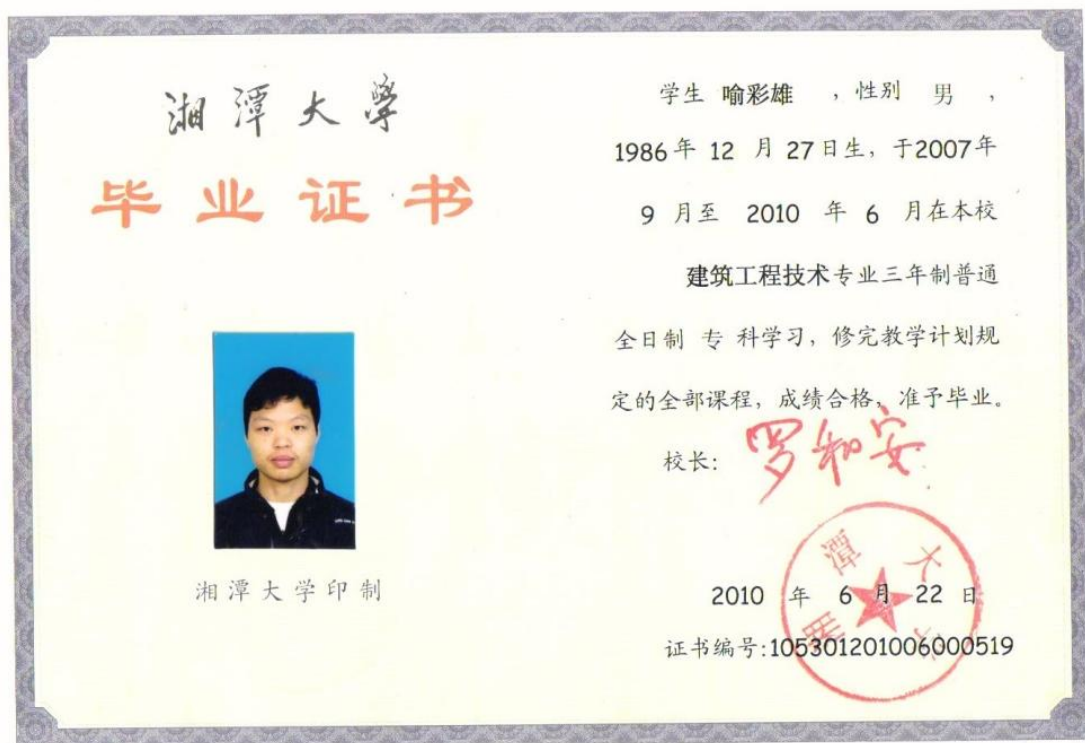 湘潭大学
毕业证书
湘潭大学印制
学生 喻彩雄 ，性别 男 ，
1986年 12 月 27日生，于2007年
9 月至 2010 年 6 月在本校
建筑工程技术专业三年制普通
全日制 专 科学习，修完教学计划规
定的全部课程，成绩合格，准予毕业。
校长：罗和安
湘潭大学
2010 年 6 月 22 日
证书编号:105301201006000519